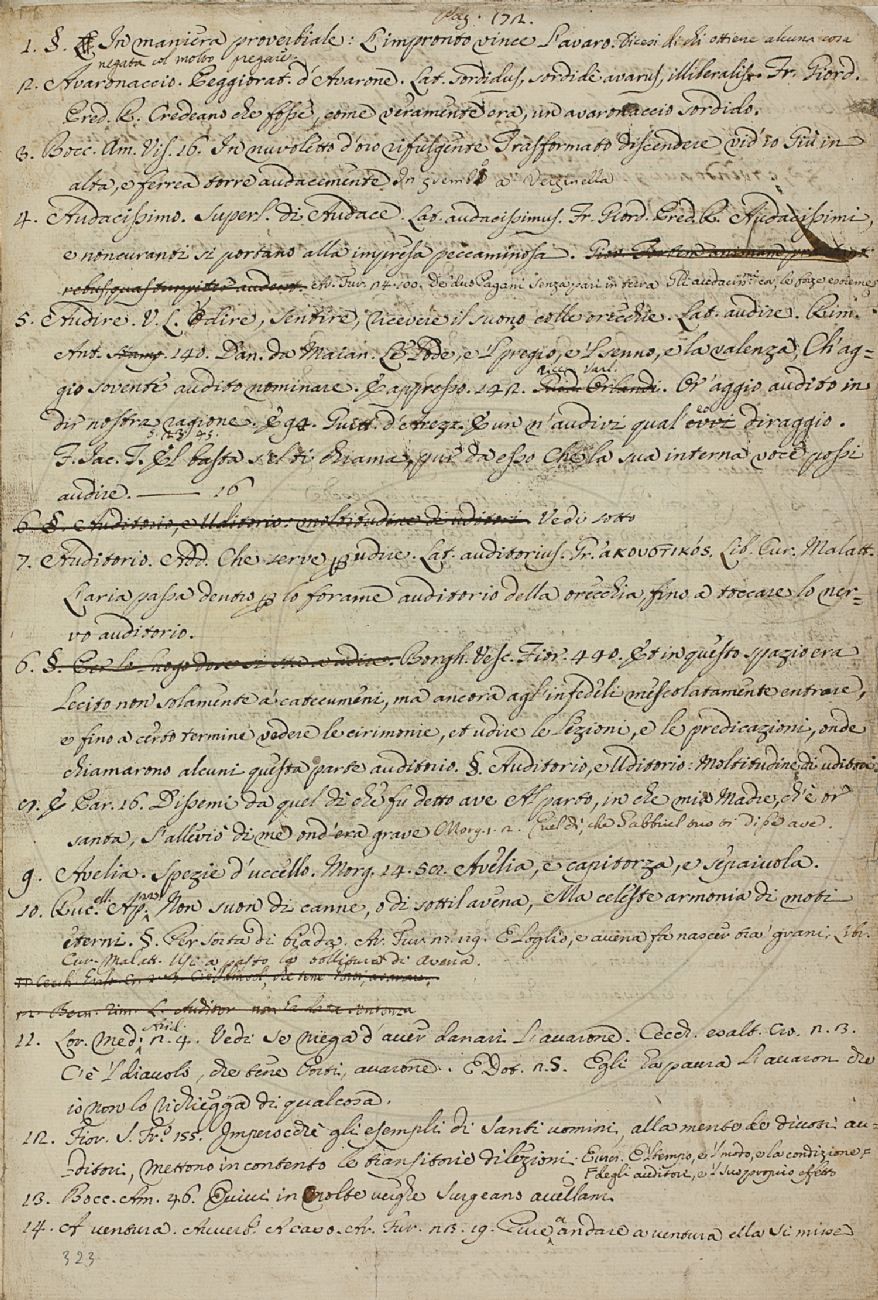 Pag. 172.
1. §. In maniera proverbiale: L'impronto vince l'avaro. Dicesi di chi ottiene alcuna cosa
negata col molto pregare.
2. Avaronaccio. Peggiorat. d'Avarone. Lat. sordidus, sordidè avarus, illiberalis. Fr. Giord.
Pred. R. Credeano che fosse, come veramente era, un avaronaccio sordido.
3. Bocc. Am. Vis. 16. In nuvoletto d'oro rifulgente Trasformato discendere vid'io Giù in
alta, e ferrea torre audacemente In grembo a Verginella
4. Audacissimo. Superl. di Audace. Lat. audacissimus. Fr. Giord. Pred. R. Audacissimi,
e noncuranti si portano alla impresa peccaminosa.
rebus quas turpiter audent. Ar. Fur. 14. 100. De' duo Pagani senza pari in terra Gli audacissimi cor, le forze estreme
5. Audire. V. L. Udire, sentire, ricevere il suono colle orecchie. Lat. audire. Rim.
Ant. 140. Dan. da Maian. Lo Pode, e 'l pregio, e 'l senno, e la valenza, Ch'ag=
gio sovente audito nominare. E appresso. 142. Or'aggio audito in
dir nostra ragione. E 94. Guitt. d'Arezz. E un n'audivi qual' eo vvi diraggio.
F. Jac. T. 5. 23. 45. El basta s'el ti chiama, pur da esso Che la sua interna voce possi
audire. —— 16
6. §. Auditorio, e Uditorio: moltitudine di uditori. Vedi sotto
7. Auditorio. Add. Che serve p udire. Lat. auditorius. Gr. ἀκουστικός. Lib. Cur. Malatt.
L'aria passa dentro p lo forame auditorio della orecchia, fino a toccare lo ner=
vo auditorio.
6. §. Per lo luogo dove si sta a udire. Borgh. Vesc. Fior. 440. Et in questo spazio era
lecito non solamente a' catecumeni, ma ancora agl'infedeli mescolatamente entrare,
e fino a certo termine vedere le cirimonie, et udire le lezioni, e le predicazioni, onde
chiamarono alcuni questa parte auditorio. §. Auditorio, e Uditorio: Moltitudine di uditori.
E Par. 16. Dissemi da quel dì che fu detto ave Al parto, in che mia Madre, ch'è or
santa, S'allevìò di me ond'era grave Morg. 1. 2. Quel dì, che Gabbriel tuo ti disse ave.
9. Avelia. Spezie d'uccello. Morg. 14. 50. Avelia, e capitorza, e sepaiuola.
10. Ruc. ell. Ap. 220. Non suon di canne, o di sottil avena, Ma celeste armonia di moti
eterni. §. Per sorta di biada. Ar. Fur. E loglio, e avena fa nascer tra' grani. Libr.
Cur. Malatt. Usi a pasto la bollitura di avena.
11. Lor. Med. Arid. n. 4. Vedi se niega d'aver danari l'avarone. Cecch. esalt. Cro. n. 3.
C'è 'l diavolo, che tene i conti, avarone. E Dot. n. 5. Egli ha paura l'avaron che
io non lo richiegga di qualcosa.
12. Fior. S. Fr. 155. Imperocchè gli esempli di santi uomini alla mente de' divoti au=
ditori, mettono in contento le transitorie dilezioni E 'l tempo, e 'l modo, e la condizione
degli auditori, e 'l suo proprio effetto
13. Bocc. Am. 46. Quivi in molte verghe surgeano avellani
14. A ventura. Avverb. A caso. Ar. Fur. 19. andare a ventura ella si mise
323